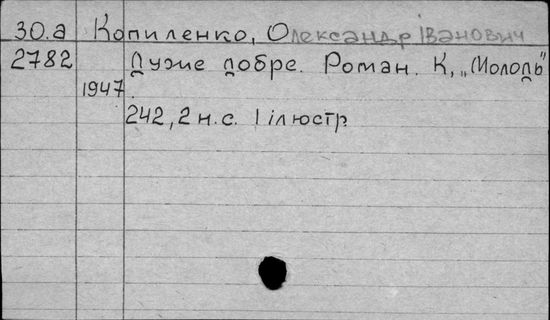 30.а Копиленко, Олександр Іванович
2782 Дуже добре. Роман. К, „Молодь"
1947.
242, 2 н.с. 1 ілюстр.